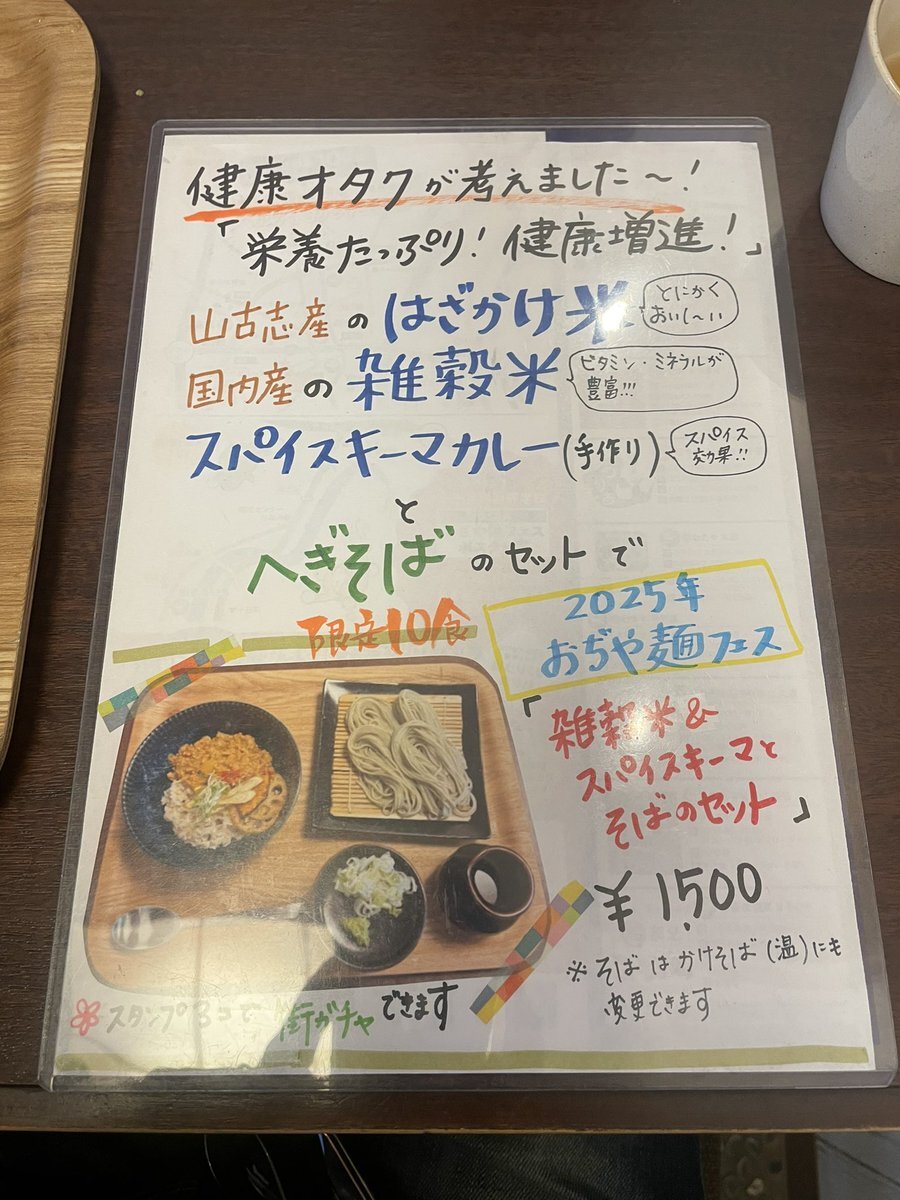 健康オタクが考えました〜!
「栄養たっぷり!健康増進!」
山古志産のはざかけ米
とにかく
おいし〜い
国内産の雑穀米
ビタミン・ミネラルが
豊富!!!
スパイスキーマカレー(手作り)
スパイス
効果!!
と
へぎそばのセットで
限定10食
2025年
おぢや麺フェス
「雑穀米&
スパイスキーマと
そばのセット」
¥1,500
※そばはかけそば(温)にも
変更できます
スタンプ3コで街ガチャできます